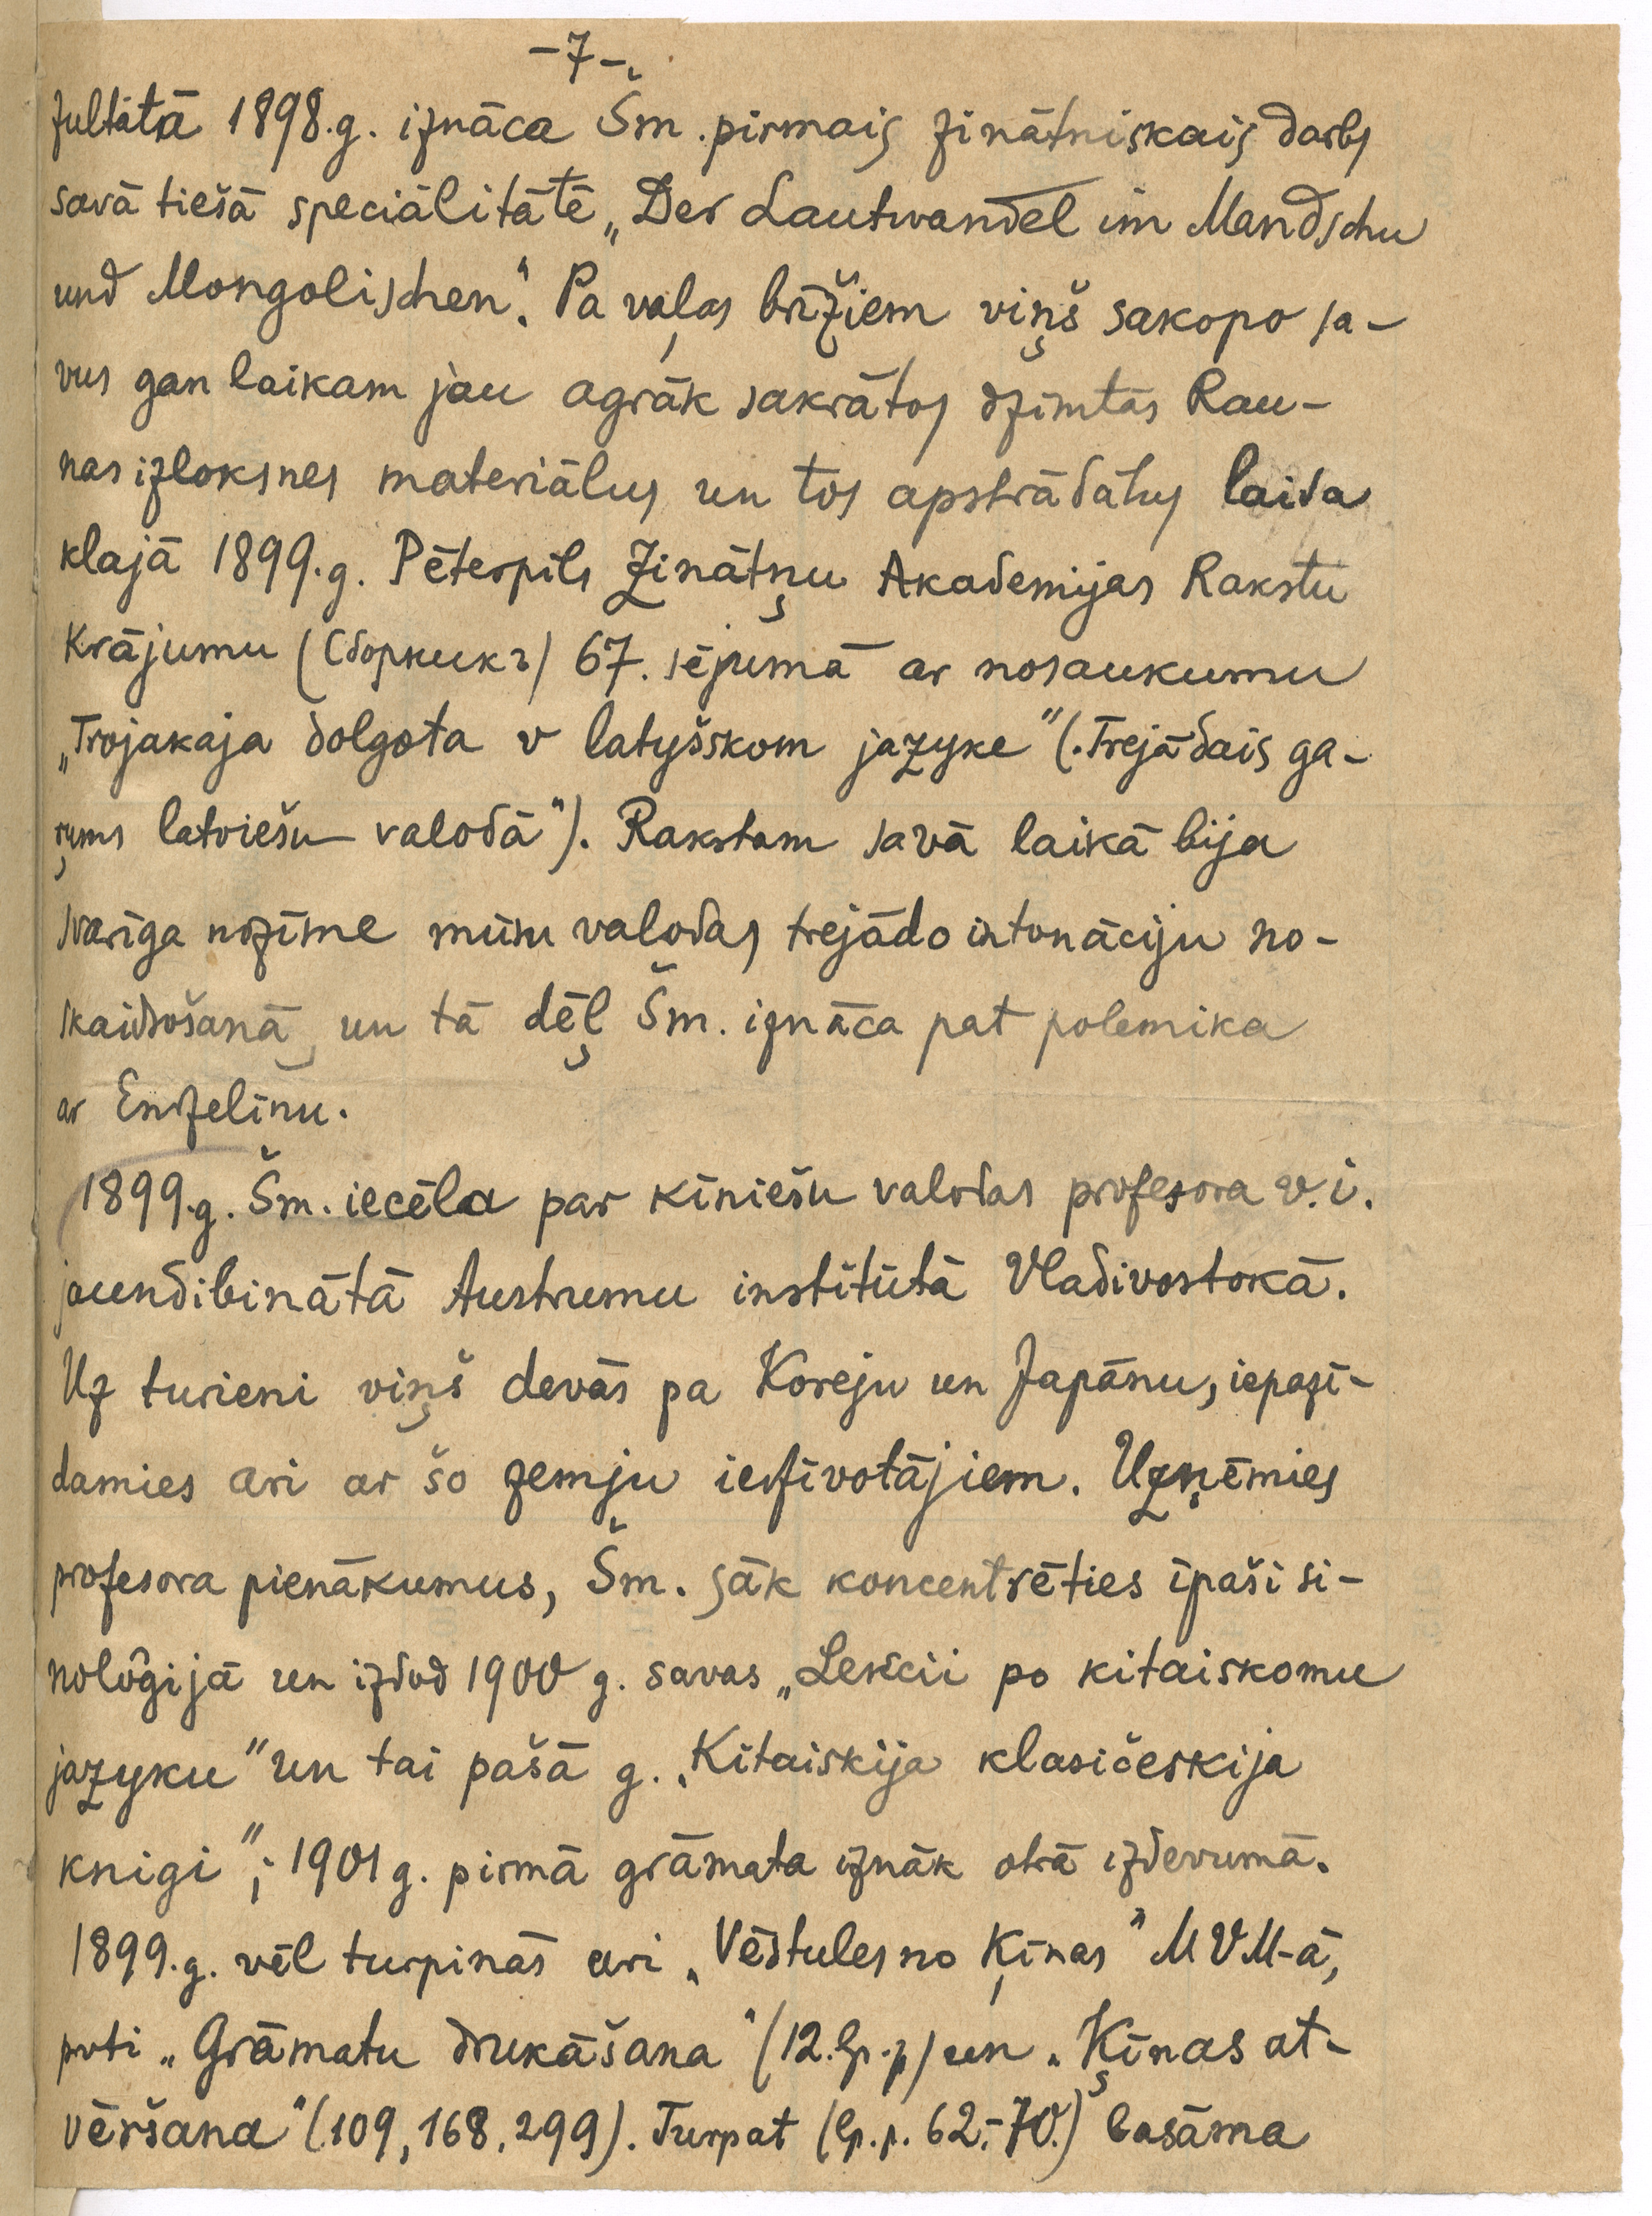 -7-
zultātā 1898.g. iznāca Šm. pirmais zinātniskais darbs
savā tiešā speciālitātē „Der Lautwandel im Mandschu
und Mongolischen“. Pa vaļas brīžiem viņš sakopo sa-
vus gan laikam jau agrāk sakrātos dzimtās Rau-
nas izloksnes materiālus un tos apstrādātus laida
klajā 1899.g. Pēterpils Zinātņu Akademijas Rakstu
Krājumu (Сборникъ) 67. sējumā ar nosaukumu
„Trojakaja dolgota v latyšskom jazyke“ („Trejādais ga-
ŗums latviešu valodā“). Rakstam savā laikā bija
svarīga nozīme mūsu valodas trejādo intonāciju no-
skaidrošanā, un tā dēļ Šm. iznāca pat polemika
ar Endzelīnu.
1899.g. Šm. iecēla par ķīniešu valodas profesora v.i.
jaundibinātā Austrumu institūtā Vladivostokā.
Uz turieni viņš devās pa Koreju un Japānu, iepazī-
damies ari ar šo zemju iedzīvotājiem. Uzņēmies
profesora pienākumus, Šm. sāk koncentrēties īpaši si-
noloģijā un izdod 1900 g. savas „Lekcii po kitaiskomu
jazyku“ un tai pašā g. „Kitaiskija klasičeskija
knigi“; 1901 g. pirmā grāmata iznāk otrā izdevumā.
1899.g. vēl turpinās ari „Vēstules no Ķīnas“ MVM-ā,
proti „Grāmatu drukāšana“ (12. lp.p) un „Ķīnas at-
vēršana“ (109, 168, 299). Turpat (lp.p. 62.-70.) lasāma